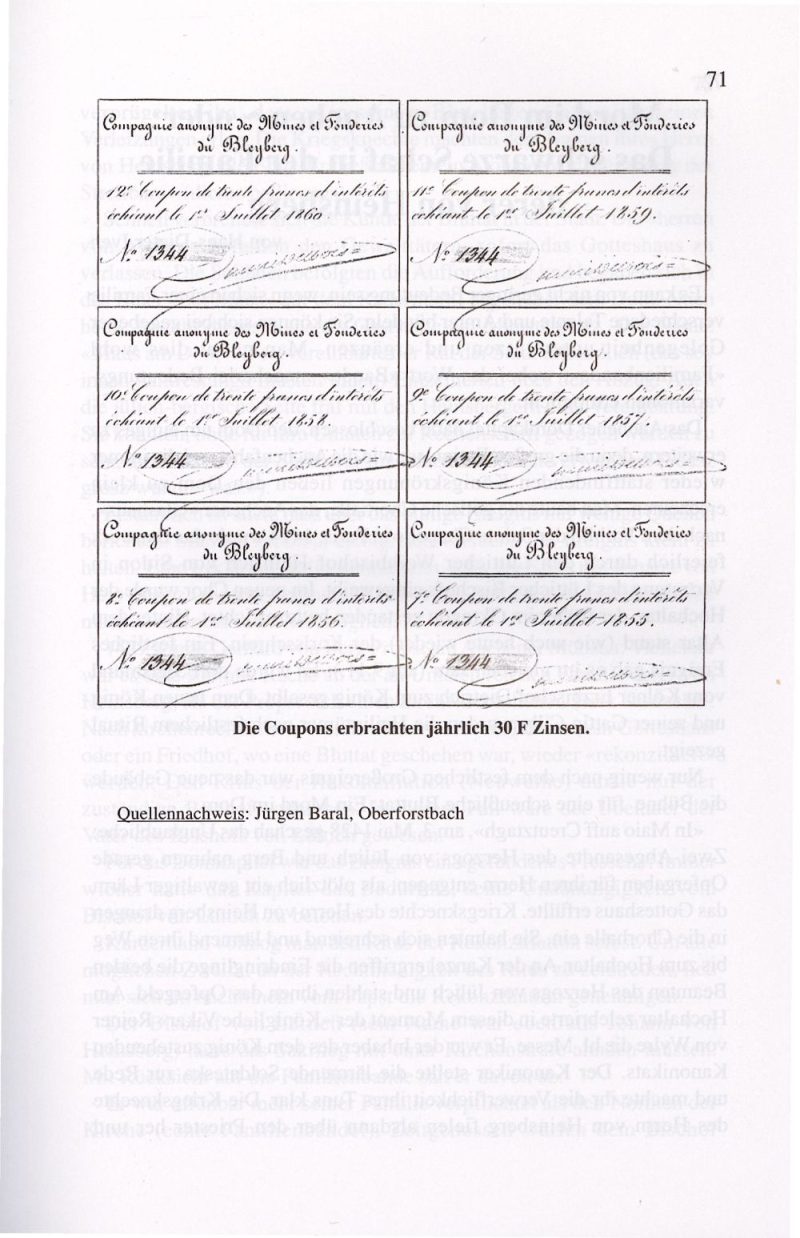 71
Compagnie anonyme des Mines et Fonderies
du Bleyberg.
12e Coupon de trente francs d'intérêts
échéant le 1er Juillet 1860.
No 1344
Compagnie anonyme des Mines et Fonderies
du Bleyberg.
11e Coupon de trente francs d'intérêts
échéant le 1er Juillet 1859.
No 1344
Compagnie anonyme des Mines et Fonderies
du Bleyberg.
10e Coupon de trente francs d'intérêts
échéant le 1er Juillet 1858.
No 1344
Compagnie anonyme des Mines et Fonderies
du Bleyberg.
9e Coupon de trente francs d'intérêts
échéant le 1er Juillet 1857.
No 1344
Compagnie anonyme des Mines et Fonderies
du Bleyberg.
8e Coupon de trente francs d'intérêts
échéant le 1er Juillet 1856.
No 1344
Compagnie anonyme des Mines et Fonderies
du Bleyberg.
7e Coupon de trente francs d'intérêts
échéant le 1er Juillet 1855.
No 1344
Die Coupons erbrachten jährlich 30 F Zinsen.
Quellennachweis: Jürgen Baral, Oberforstbach